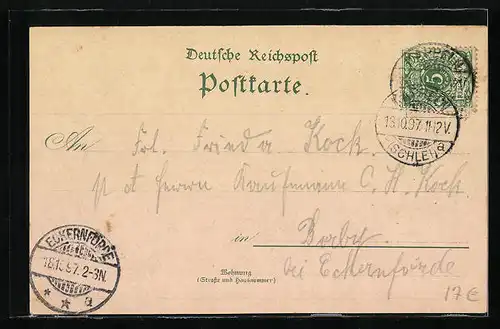 Deutsche Reichspost
Postkarte.
KAPPELN
18.10.97.11-12V.
(SCHLEI) a
5
An Frl. Frieda Kock
p. A. Herrn Kaufmann C. H. Kock
in Borby
bei Eckernförde
Wohnung
(Straße und Hausnummer)
ECKERNFÖRDE
18.10.97.2-3N.
* * a
17€